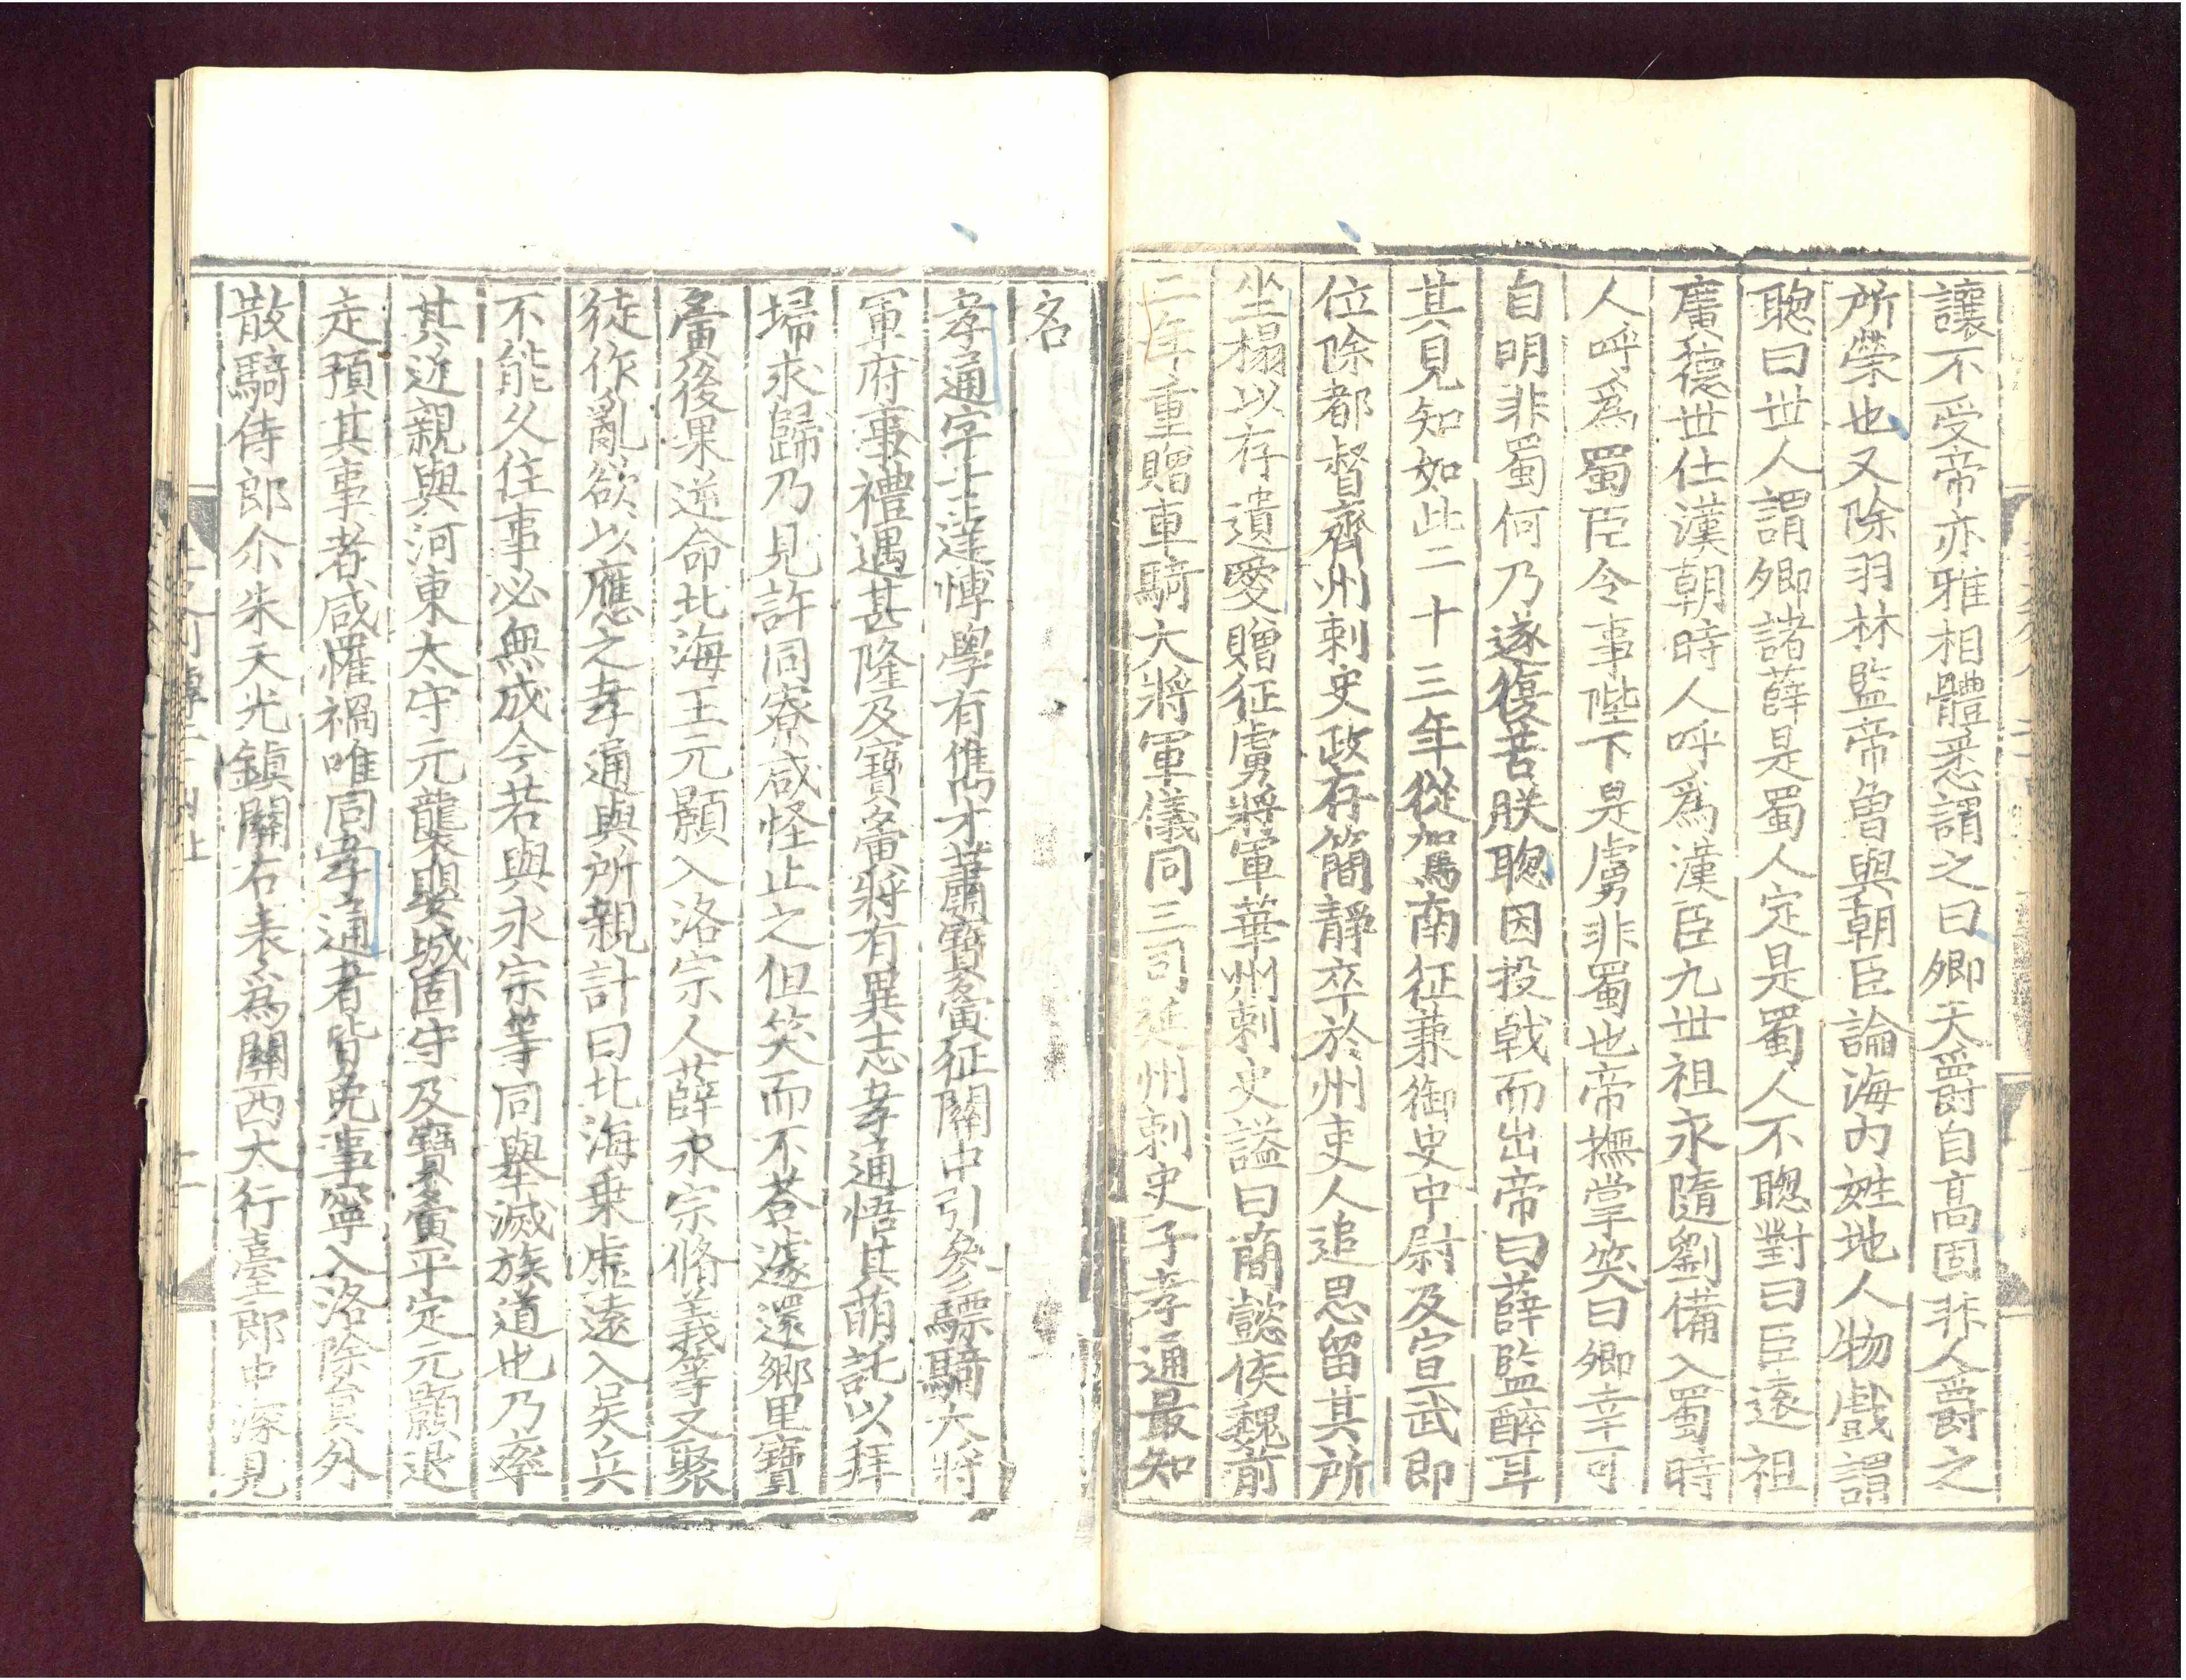 讓不受帝亦雅相體悉謂之曰卿天爵自髙固非人爵之
所榮也又除羽林監帝曽與朝臣論海内姓地人物戲謂
聦曰世人謂卿諸薛是蜀人定是蜀人不聦對曰臣遠祖
廣德世仕漢朝時人呼爲漢臣九世祖永隨劉備入蜀時
人呼爲蜀臣今事陛下是虜非蜀也帝撫掌笑曰卿幸可
自明非蜀何乃遂復苦朕聦因投戟而出帝曰薛監醉耳
其見知如此二十三年從駕南征兼御史中尉及宣武即
位除都督齊州刺史政存簡靜卒於州吏人追思留其所
坐榻以存遺愛贈征虜將軍華州刺史謚曰簡懿侯魏前
二年重贈車騎大將軍儀同三司延州刺史子孝通最知
名
孝通字士達博學有雋才蕭寶夤征關中引參驃騎大將
軍府事禮遇甚隆及寶夤將有異志孝通悟其萌託以拜
掃求歸乃見許同寮咸怪止之但笑而不荅遂還鄉里寶
夤後果逆命北海王元顥入洛宗人薛永宗脩義等又聚
徒作亂欲以應之孝通與所親計曰北海乗虛遠入吴兵
不能久住事必無成今若與永宗等同舉滅族道也乃率
其近親與河東太守元襲嬰城固守及寶夤平定元顥退
走預其事者咸罹禍唯同孝通者皆免事寧入洛除員外
散騎侍郎尒朱天光鎮關右表爲關西大行臺郎中深見